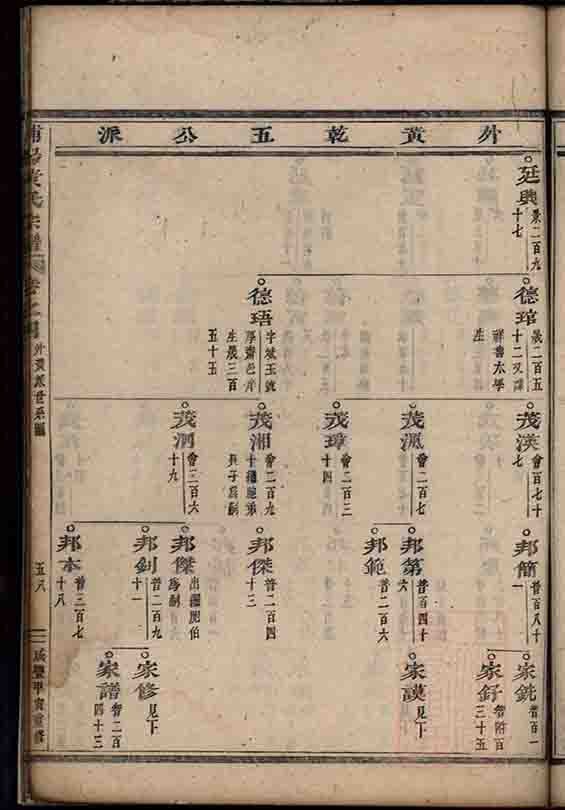 外黄乾五公派
廷興
景二百九
十七
德琯
晟二百五
十二又譯
祥書太學
生
德珸
字斌玉號
厚齋邑庠
生晟三百
五十五
茂渶
會百七十
七
茂渢
會二百七
茂璋
會二百三
十四
茂湘
會二百九
十繼胞弟
長子爲嗣
茂洞
會三百六
十九
邦簡
普百八十
一
邦第
普百四十
六
邦範
普二百六
邦傑
普二百四
十三
邦傑
出繼胞伯
爲嗣
邦釗
普二百九
十一
邦本
普三百七
十八
家銑
智百一
家釪
智附百
三十五
家謨
見下
家修
見下
家譜
智二百
四十三
浦陽黄氏宗譜
外黄派世系圖
五八
咸豐甲寅重修